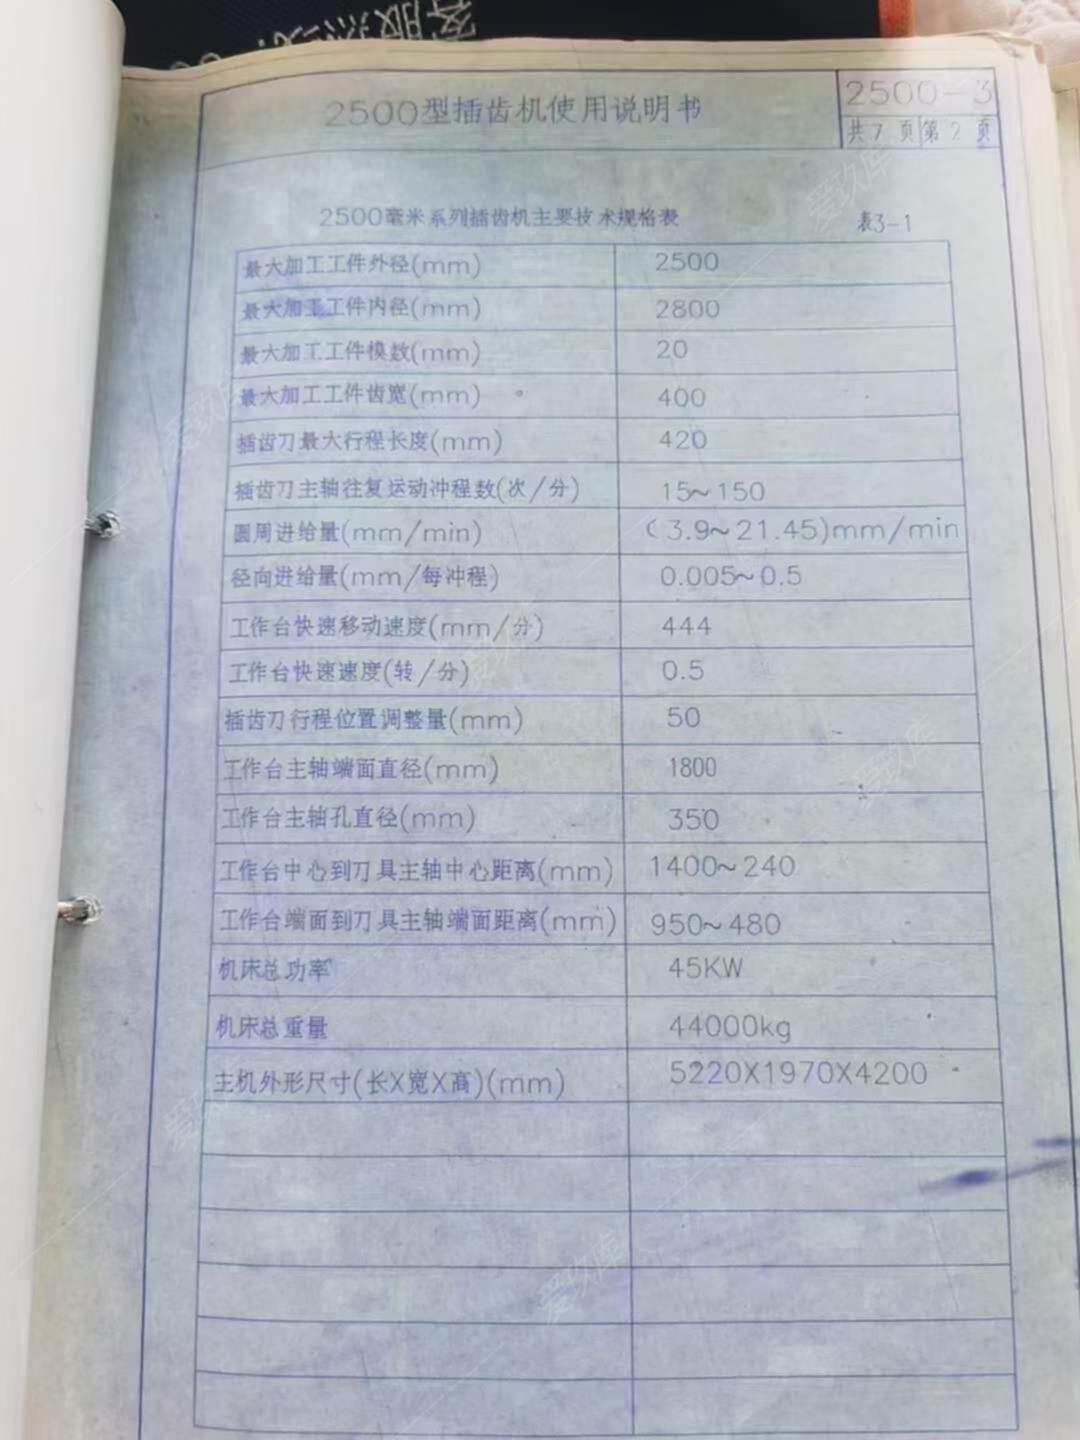 2500型插齿机使用说明书
2500-3
共7页 第2页
2500毫米系列插齿机主要技术规格表 表3-1
最大加工工件外径(mm) 2500
最大加工工件内径(mm) 2800
最大加工工件模数(mm) 20
最大加工工件齿宽(mm) 400
插齿刀最大行程长度(mm) 420
插齿刀主轴往复运动冲程数(次/分) 15~150
圆周进给量(mm/min) (3.9~21.45)mm/min
径向进给量(mm/每冲程) 0.005~0.5
工作台快速移动速度(mm/分) 444
工作台快速速度(转/分) 0.5
插齿刀行程位置调整量(mm) 50
工作台主轴端面直径(mm) 1800
工作台主轴孔直径(mm) 350
工作台中心到刀具主轴中心距离(mm) 1400~240
工作台端面到刀具主轴端面距离(mm) 950~480
机床总功率 45KW
机床总重量 44000kg
主机外形尺寸(长X宽X高)(mm) 5220X1970X4200
爱玖库
爱玖库
爱玖库
爱玖库